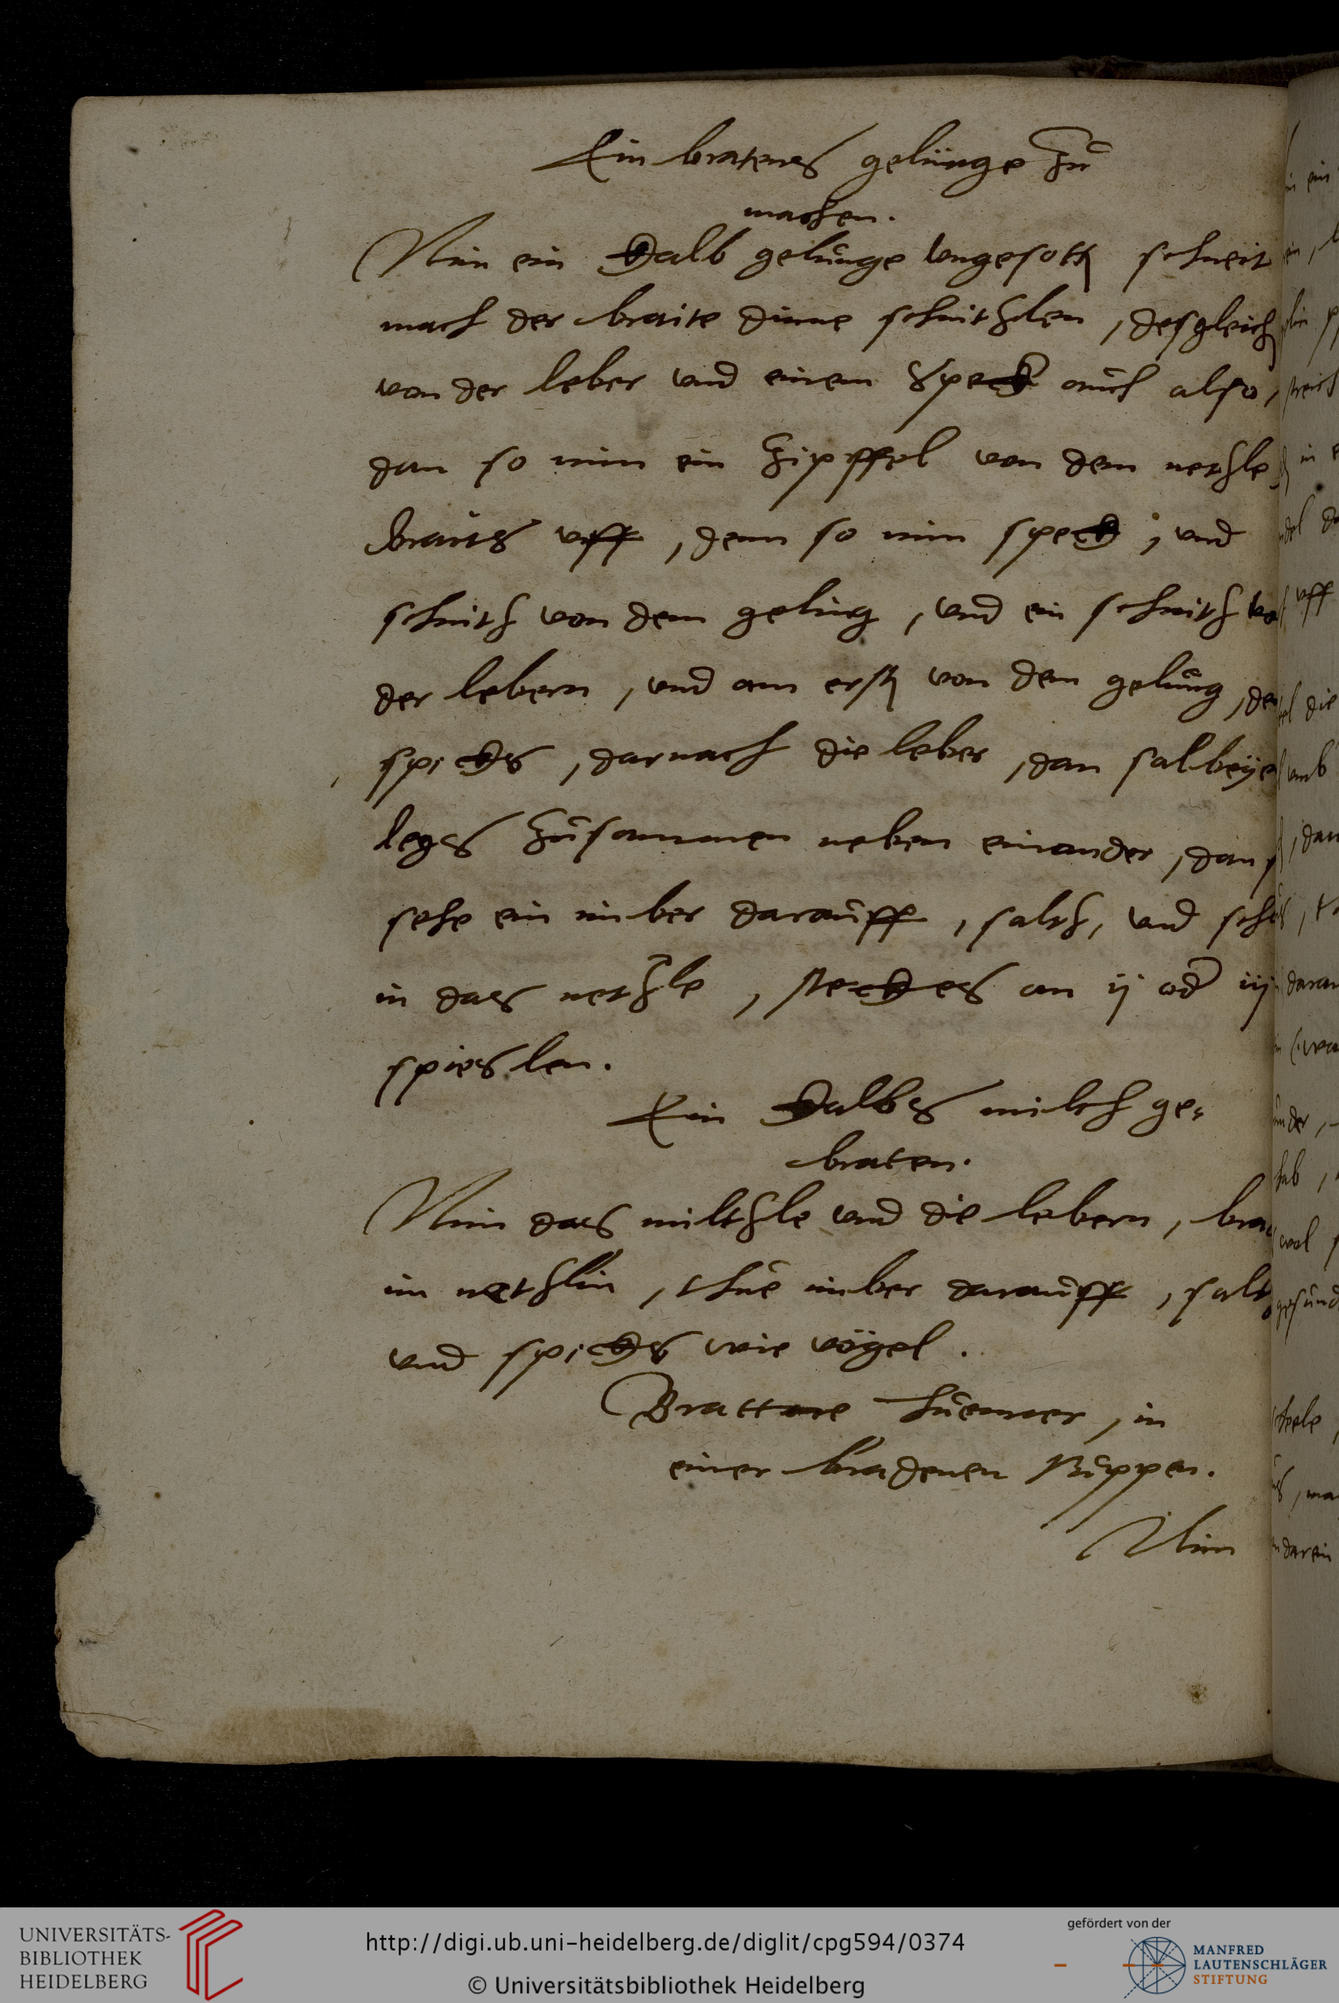 Ein bratens gelünge zů
machen.
Nim ein Kalb gelünge vngesotten schneit
nach der braite dinne schnitzlen, desgleichen
von der leber vnd einem Speck auch also,
dan so nim ein Zipffel von dem netzle
braits vff, denn so nim speck, vnd
schnitz von dem geling, vnd ein schnitz
der lebern, vnd am ersten von dem gelüng,
spicks, darnach die leber, dan salbeÿe
legs zusammen neben einander, dan
sehe ein imber darauff, saltz, vnd
in das netzle, steckes an ij oder iij
spieslen.
Ein Kalbs milch ge-
braten.
Nim das miltzle vnd die lebern,
im netzlin, thue imber darauff,
vnd spicks wie vögel.
Brattne huenner, in
einer bradenen Suppen.
Nim
UNIVERSITÄTS-
BIBLIOTHEK
HEIDELBERG
http://digi.ub.uni-heidelberg.de/diglit/cpg594/0374
© Universitätsbibliothek Heidelberg
gefördert von der
MANFRED
LAUTENSCHLÄGER
STIFTUNG